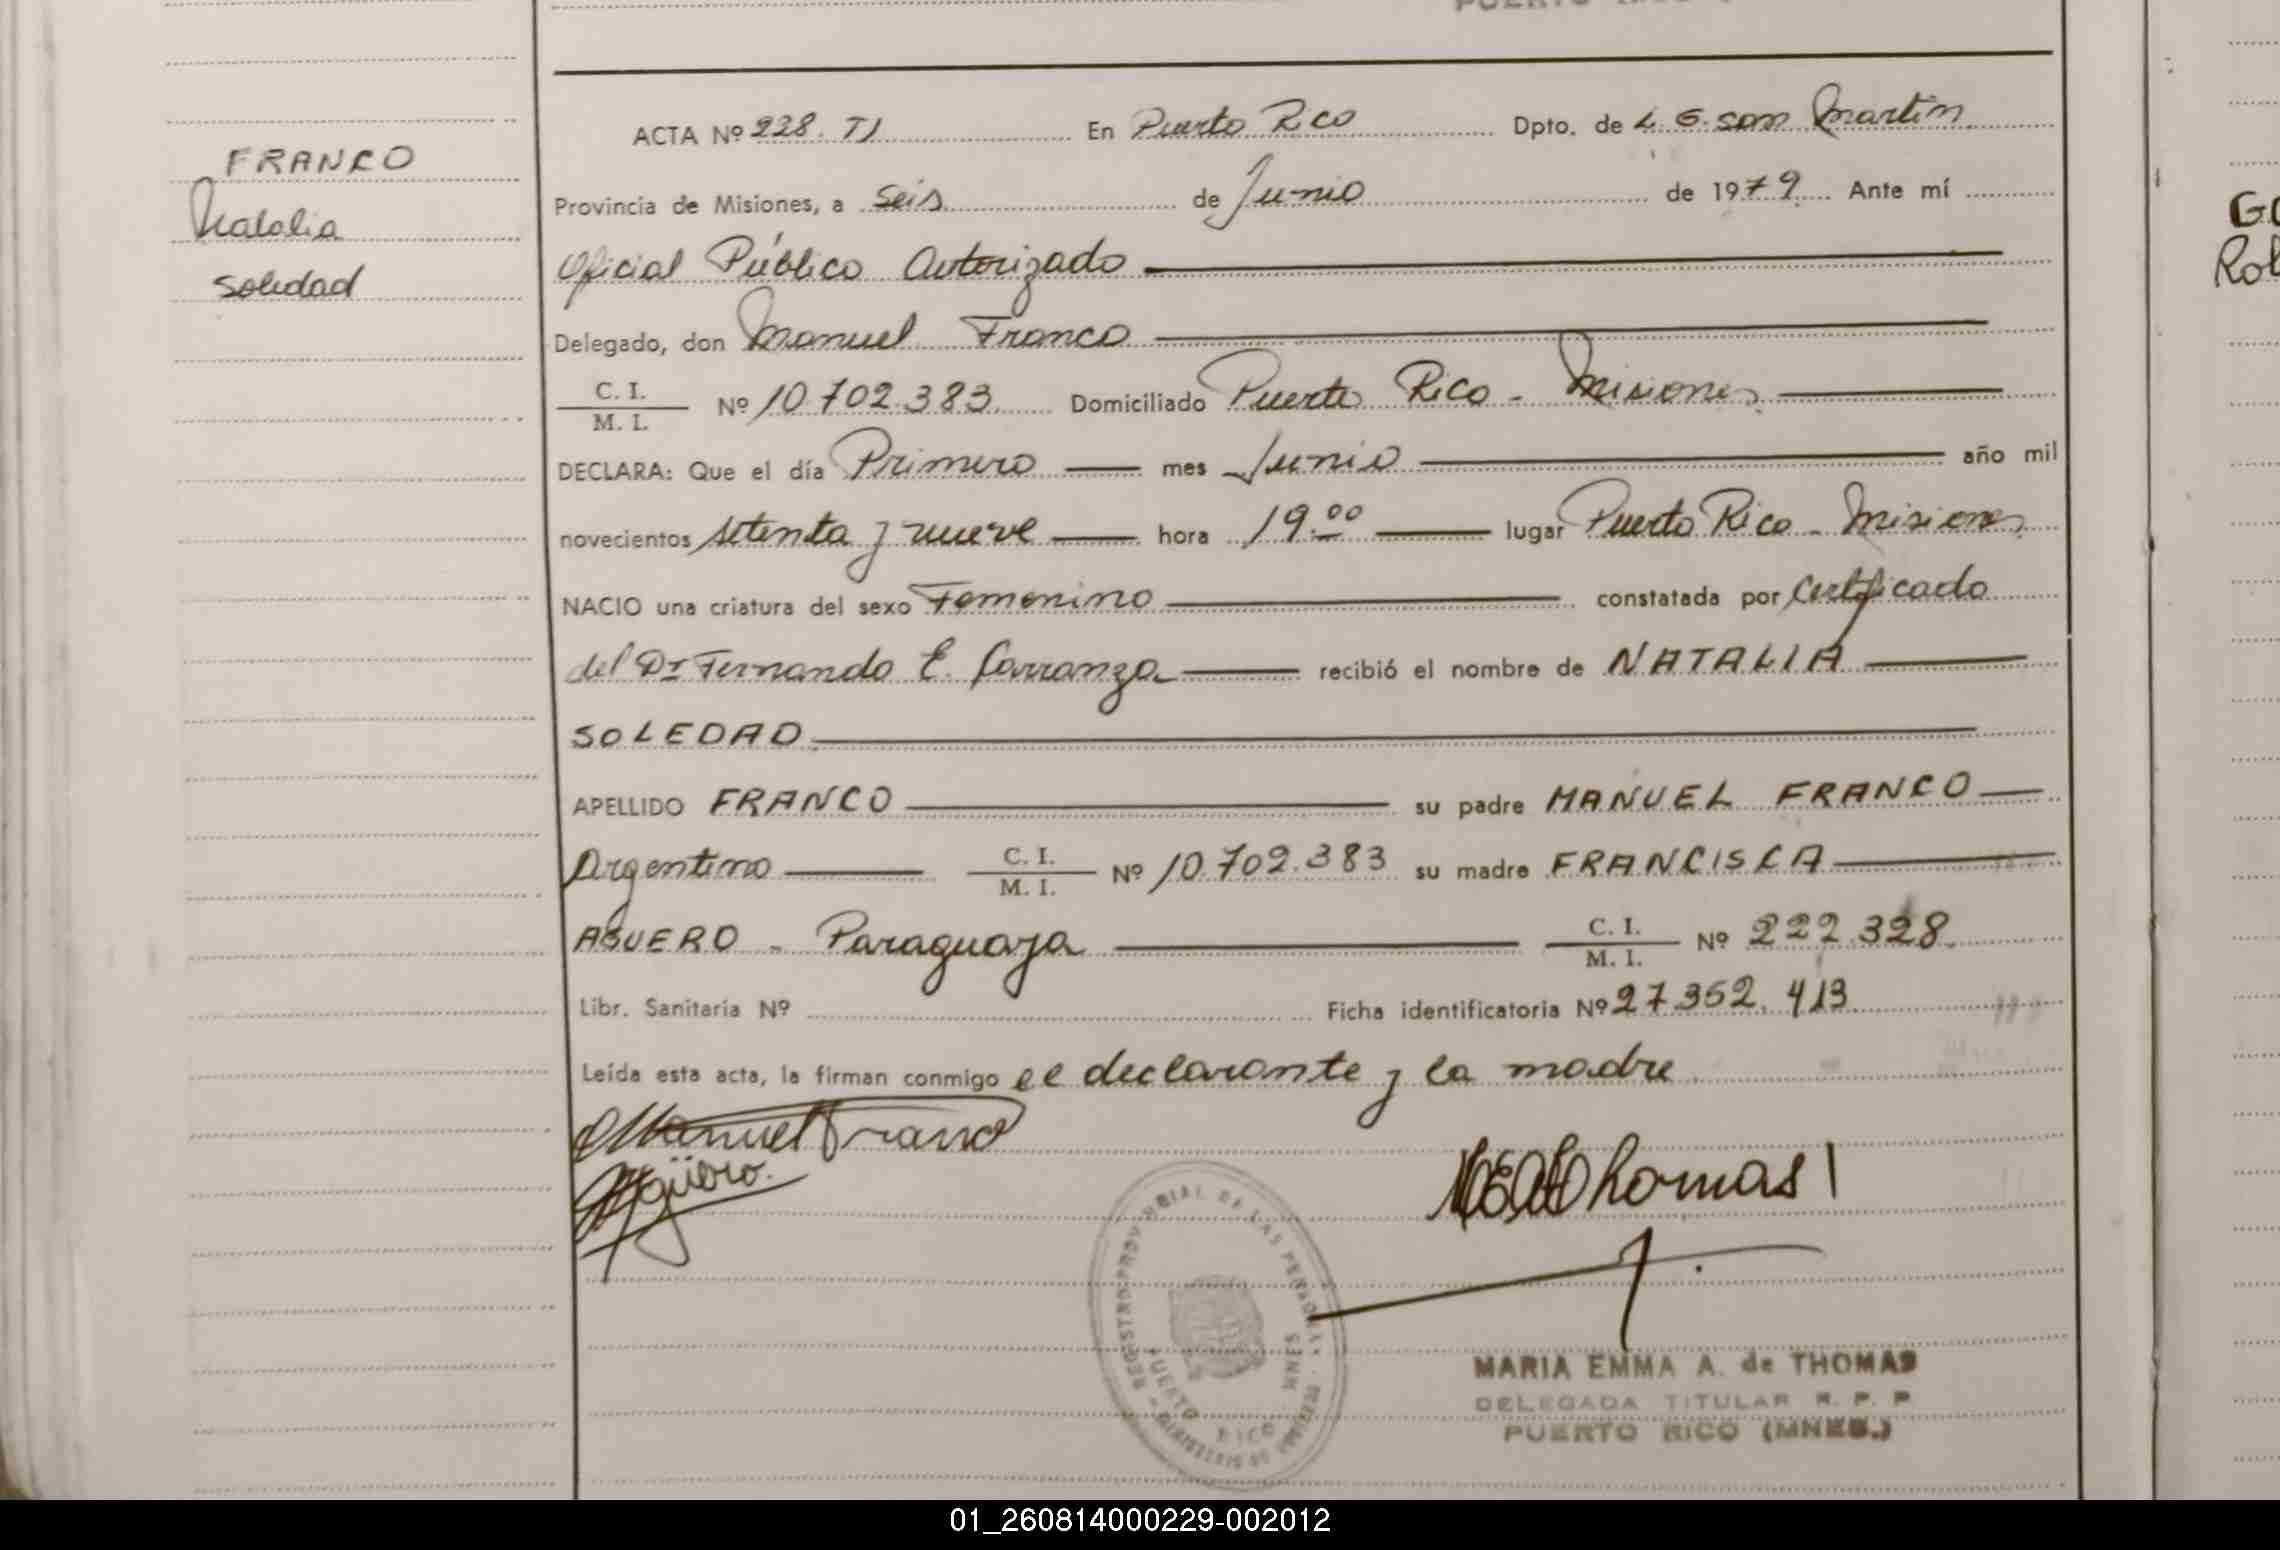 FRANCO
Natalia
Soledad
ACTA Nº 228. TI En Puerto Rico Dpto. de L. G. San Martin
Provincia de Misiones, a Seis de Junio de 1979. Ante mí
Oficial Público Autorizado
Delegado, don Manuel Franco
C. I.
M. I.
Nº 10.702.383 Domiciliado Puerto Rico - Misiones.
DECLARA: Que el día Primero mes Junio año mil
novecientos setenta y nueve hora 19.00 lugar Puerto Rico - Misiones
NACIO una criatura del sexo Femenino constatada por Certificado
del Dr Fernando E. Carranza recibió el nombre de NATALIA
SOLEDAD
APELLIDO FRANCO su padre MANUEL FRANCO
Argentino C. I. Nº 10.702.383 su madre FRANCISCA
M. I.
AGUERO - Paraguaya C. I. Nº 222.328.
M. I.
Libr. Sanitaria Nº Ficha identificatoria Nº 27.352.413
Leída esta acta, la firman conmigo el declarante y la madre
Manuel Franco
Agüero.
Thomas
PUERTO RICO
MARIA EMMA A. de THOMAS
DELEGADA TITULAR R. P. P.
PUERTO RICO (MNES.)
01_260814000229-002012